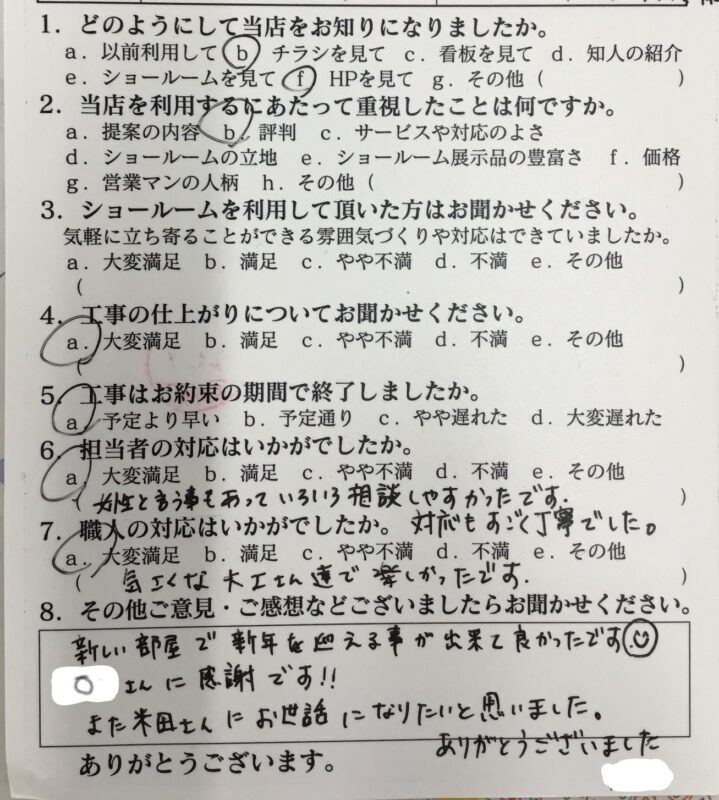 1．どのようにして当店をお知りになりましたか。
a．以前利用して b チラシを見て c．看板を見て d．知人の紹介
e．ショールームを見て f HPを見て g．その他（ ）
2．当店を利用するにあたって重視したことは何ですか。
a．提案の内容 b．評判 c．サービスや対応のよさ
d．ショールームの立地 e．ショールーム展示品の豊富さ f．価格
g．営業マンの人柄 h．その他（ ）
3．ショールームを利用して頂いた方はお聞かせください。
気軽に立ち寄ることができる雰囲気づくりや対応はできていましたか。
a．大変満足 b．満足 c．やや不満 d．不満 e．その他
（ ）
4．工事の仕上がりについてお聞かせください。
a．大変満足 b．満足 c．やや不満 d．不満 e．その他
（ ）
5．工事はお約束の期間で終了しましたか。
a．予定より早い b．予定通り c．やや遅れた d．大変遅れた
6．担当者の対応はいかがでしたか。
a．大変満足 b．満足 c．やや不満 d．不満 e．その他
（女性と言う事もあっていろいろ相談しやすかったです．）
7．職人の対応はいかがでしたか。 対応もすごく丁寧でした。
a．大変満足 b．満足 c．やや不満 d．不満 e．その他
（ 気さくな大工さん達で楽しかったです．）
8．その他ご意見・ご感想などございましたらお聞かせください。
新しい部屋で新年を迎える事が出来て良かったです
さんに感謝です!!
また米田さんにお世話になりたいと思いました。
ありがとうございました
ありがとうございます。